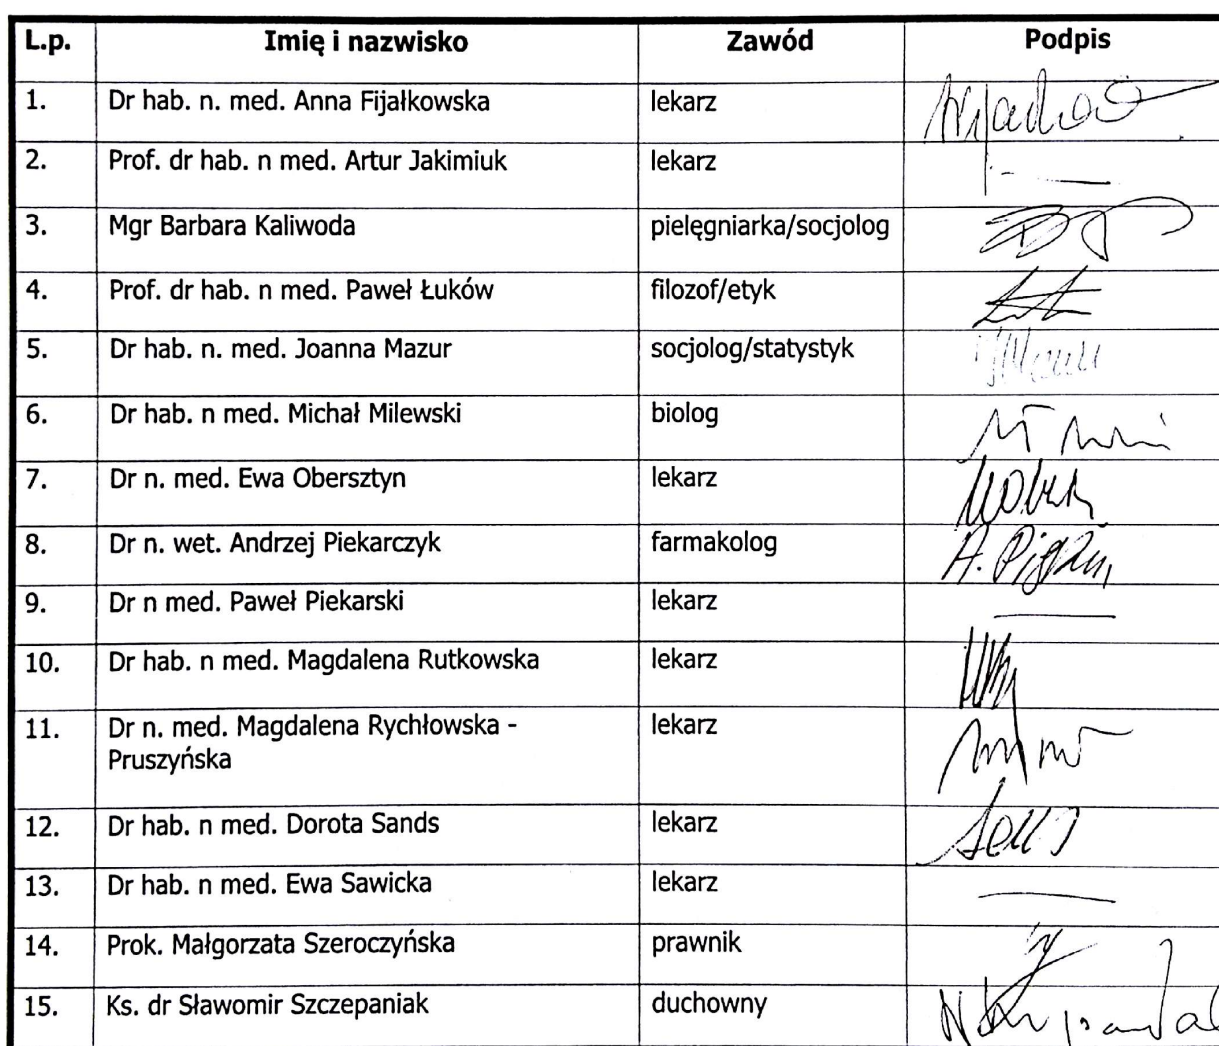 L.p. Imię i nazwisko Zawód Podpis
1. Dr hab. n. med. Anna Fijałkowska lekarz
2. Prof. dr hab. n med. Artur Jakimiuk lekarz
3. Mgr Barbara Kaliwoda pielęgniarka/socjolog
4. Prof. dr hab. n med. Paweł Łuków filozof/etyk
5. Dr hab. n. med. Joanna Mazur socjolog/statystyk
6. Dr hab. n med. Michał Milewski biolog
7. Dr n. med. Ewa Obersztyn lekarz
8. Dr n. wet. Andrzej Piekarczyk farmakolog
9. Dr n med. Paweł Piekarski lekarz
10. Dr hab. n med. Magdalena Rutkowska lekarz
11. Dr n. med. Magdalena Rychłowska - lekarz
Pruszyńska
12. Dr hab. n med. Dorota Sands lekarz
13. Dr hab. n med. Ewa Sawicka lekarz
14. Prok. Małgorzata Szeroczyńska prawnik
15. Ks. dr Sławomir Szczepaniak duchowny